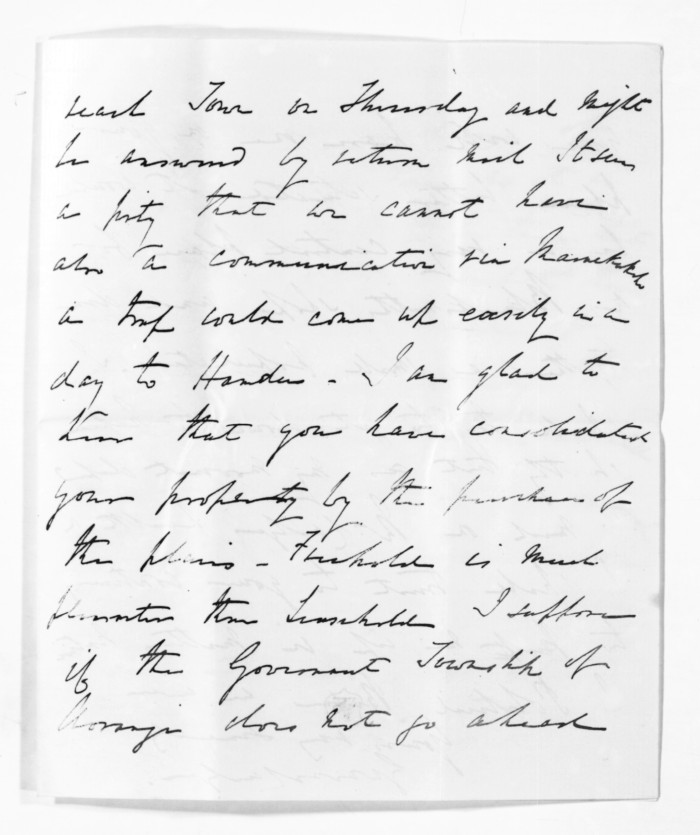 reach Town on Thursday and might
be answered by return mail It seems
a pity that we cannot have
also a communication via Manakakaho
a trap could come up easily in a
day to Hamden - I am glad to
know that you have consolidated
your property by the purchase of
the plains - Freehold is much
pleasanter than Leasehold I suppose
if the Government Township of
does not go ahead